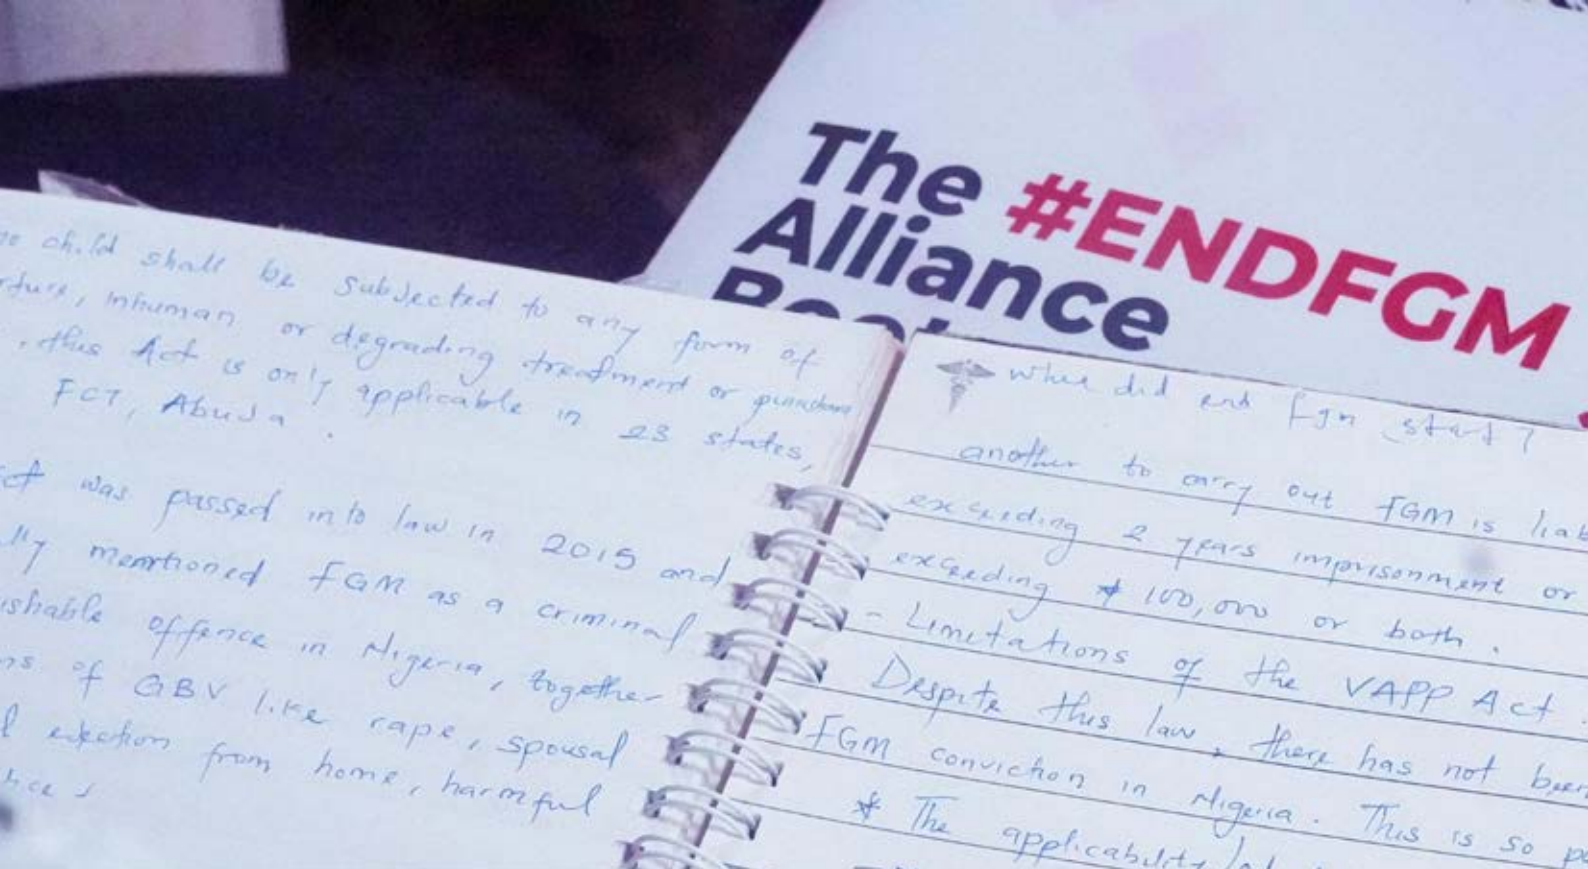 The #ENDFGM
Alliance
no child shall be subjected to any form of
inhuman or degrading treatment or
this Act is only applicable in 23 states,
FCT, Abuja.
was passed into law in 2015 and
mentioned FGM as a criminal
offence in Nigeria, together
of GBV like rape, spousal
ejection from home, harmful
did end fgm start?
another to carry out FGM is
exceeding 2 years imprisonment or
exceeding 100,000 or both.
- Limitations of the VAPP Act
Despite this law, there has not been
FGM conviction in Nigeria. This is so
* The applicability